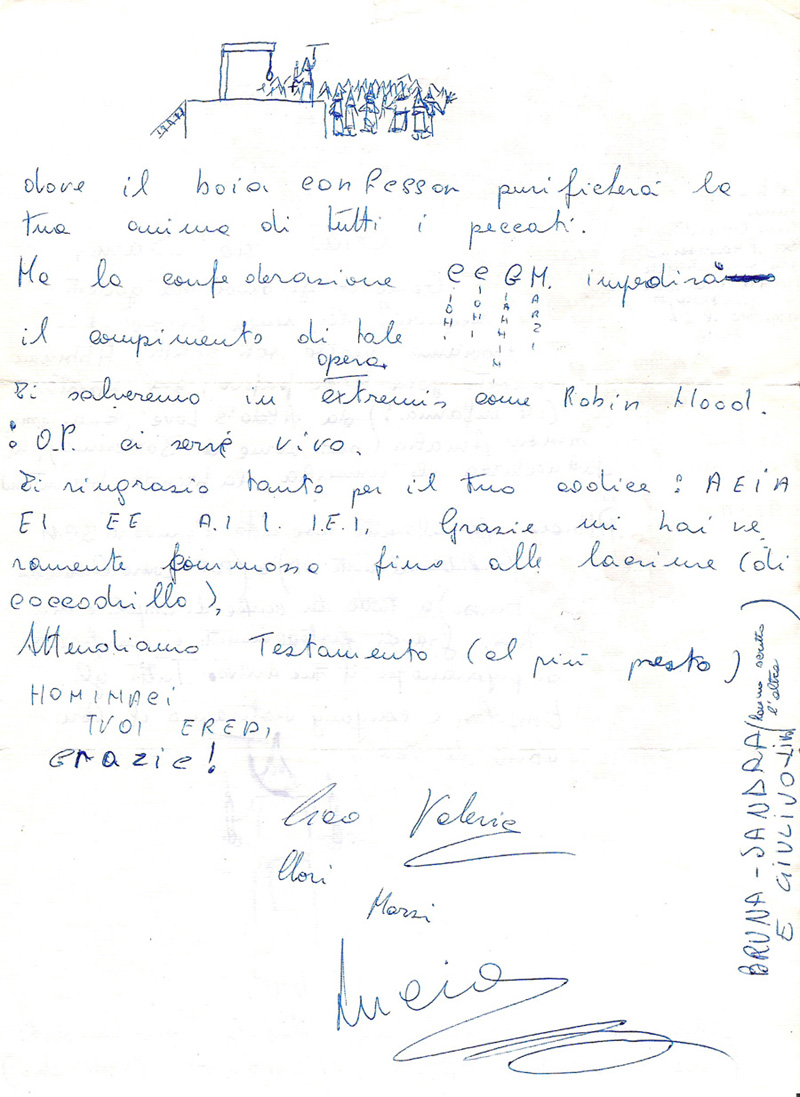 dove il boia confessor purificherà la
tua anima di tutti i peccati.
Ma la confederazione C C G M. impedirà
il compimento di tale
opera.
Ti salveremo in extremis come Robin Hood.
: O.P. ci serve vivo.
Ti ringrazio tanto per il tuo codice : A E I A
EI EE A.I I. I.E.I. Grazie mi hai ve
ramente commosso fino alle lacrime (di
coccodrillo),
Attendiamo Testamento (al più presto)
NOMINACI
TUOI EREDI,
GRAZIE!
Ciao Valerie
Mori
Marzi
Lucia
BRUNA - SANDRA (hanno scritto
l'altra
E GIULIVO-